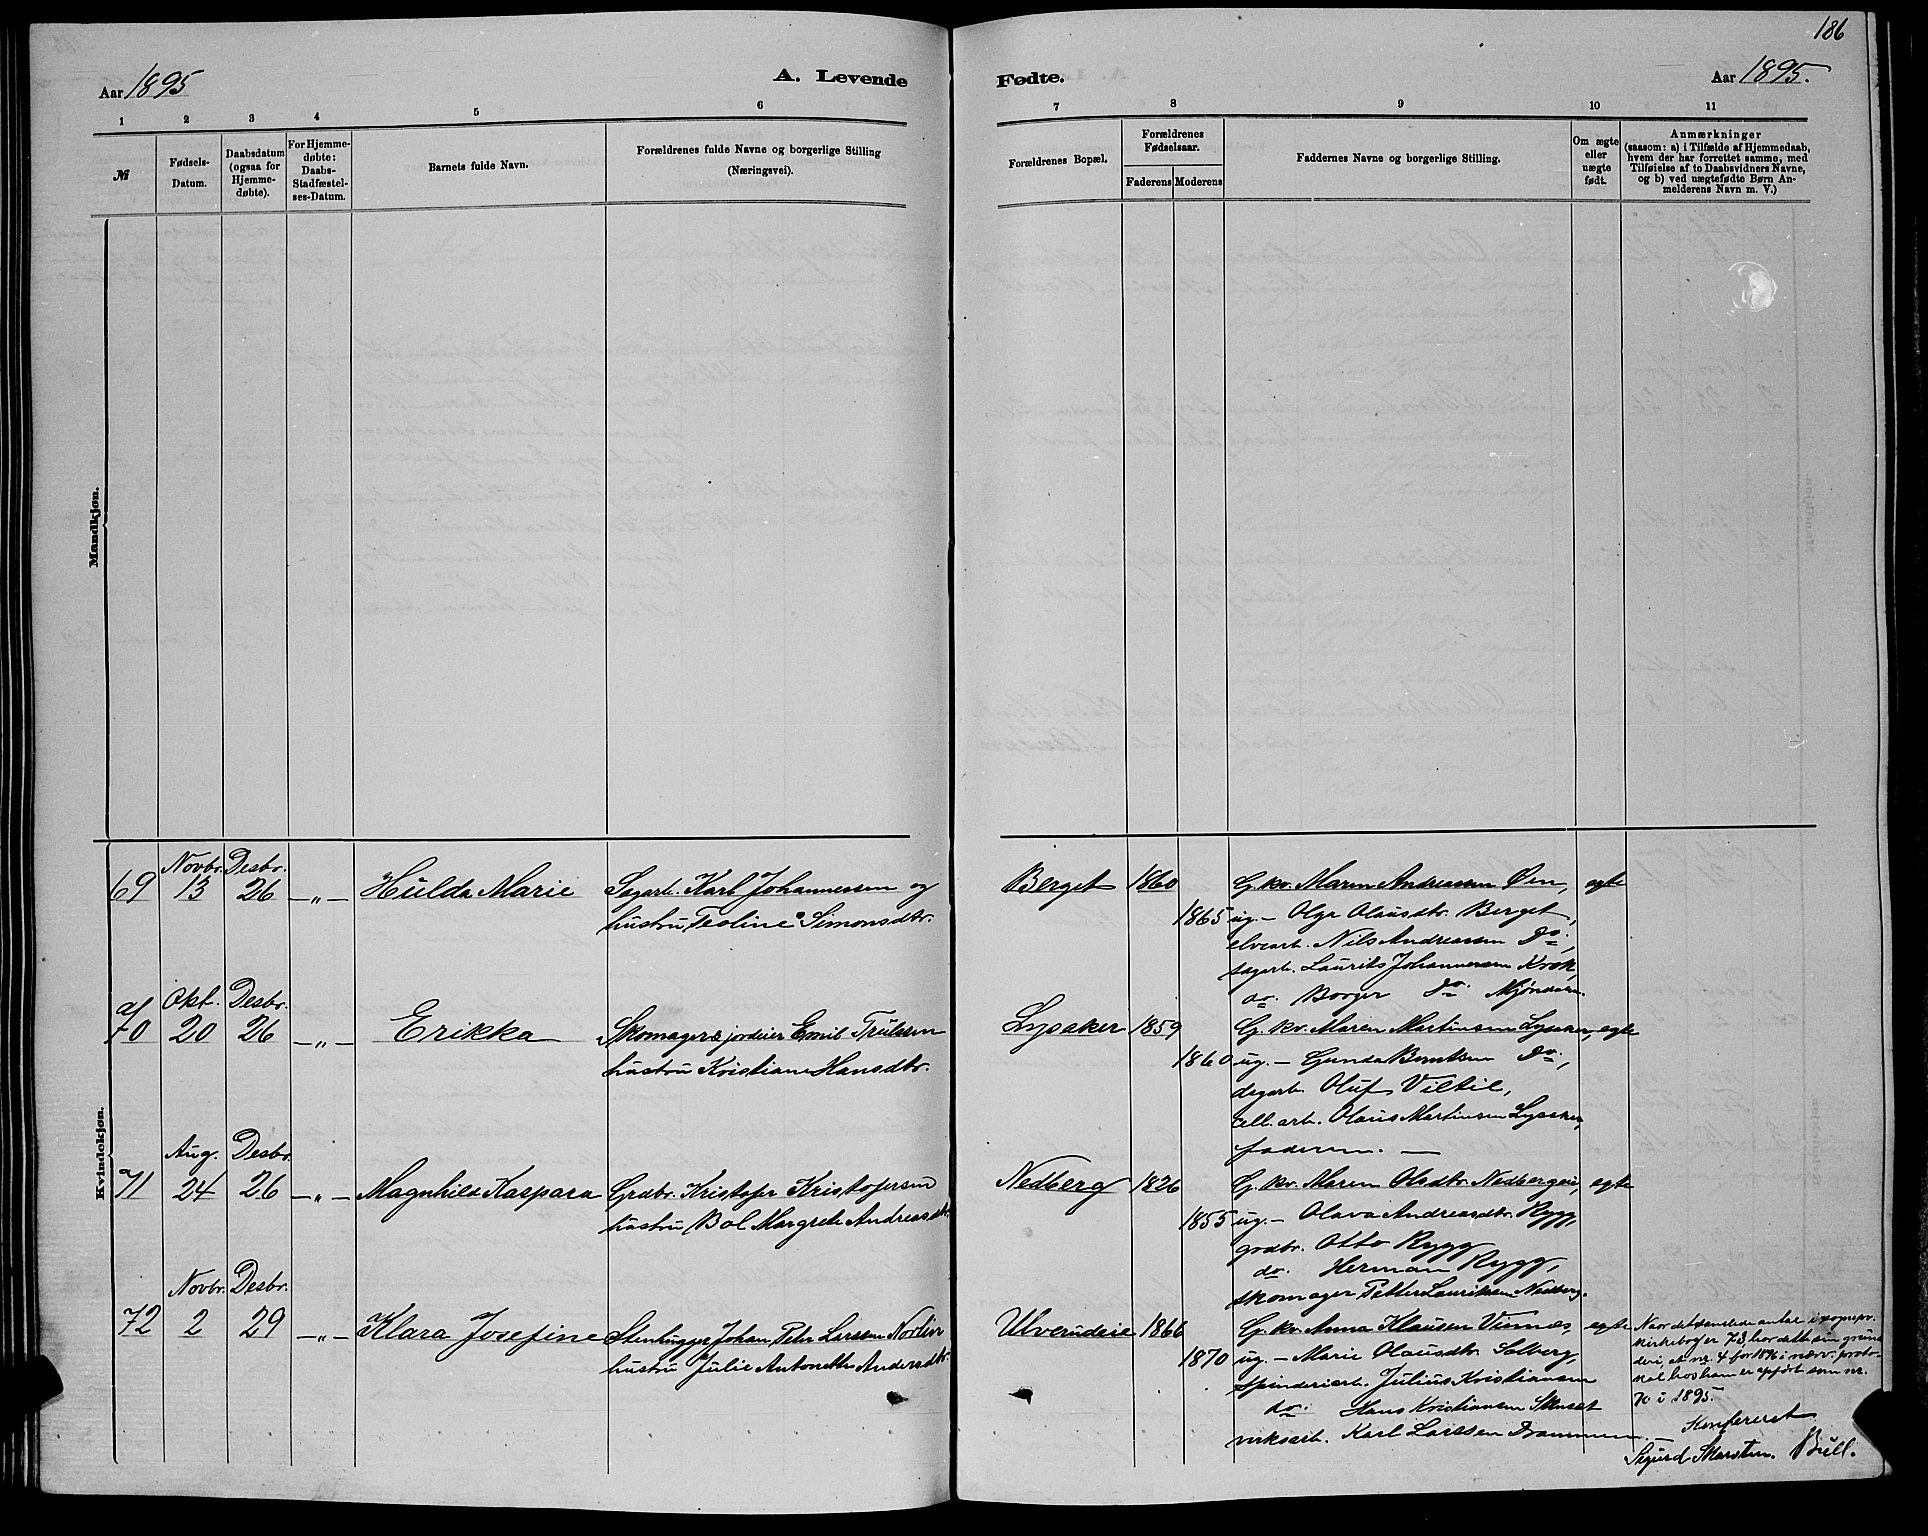 186
Aar 1895
A. Levende
Fødte.
Aar 1895.
1 2 3 4 5 6 7 8 9 10 11
№
Fødsels-
Datum.
Daabsdatum
(ogsaa for
Hjemme-
døbte).
For Hjemme-
døbte:
Daabs-
Stadfæstel-
ses-Datum.
Barnets fulde Navn.
Forældrenes fulde Navne og borgerlige Stilling
(Næringsvei).
Forældrenes Bopæl.
Forældrenes
Fødselsaar.
Faderens Moderens
Faddernes Navne og borgerlige Stilling.
Om ægte
eller
uægte
født.
Anmærkninger
(saasom: a) i Tilfælde af Hjemmedaab,
hvem der har forrettet samme, med
Tilføielse af to Daabsvidners Navne,
og b) ved uægtefødte Børn An-
melderens Navn m. V.)
Mandkjøn.
Kvindekjøn.
Novbr. Desbr.
69 13 26 —„— Hulda Marie Sagarb. Karl Johannessen og
hustru Teoline Simonsdtr.
Berget 1860 G. kv. Maren Andreassen Øen, egte
1865 ug. — Olga Olausdtr. Berget,
elvearb. Nils Andreassen Do.,
sagarb. Laurits Johannessen Krok,
do. Borger do. Mjøndalen.
Okt. Desbr.
70 20 26 —„— Erikka Skomager & jordeier Emil Trulsen
hustru Kristiane Hansdtr.
Lysaker 1859 G. kv. Maren Martinsen Lysaker, egte
1860 ug. — Gunda Berntsen Do.,
dagarb. Oluf Viltil,
cell. arb. Olaus Martinsen Lysaker,
faderen. —
Aug. Desbr.
71 24 26 —„— Magnhild Kaspara Grdbr. Kristofer Kristofersen
hustru Bol Margrete Andreasdtr.
Nedberg 1826 G. kv. Maren Olsdtr. Nedbergeie, egte
1855 ug. — Olava Andreasdtr. Rygg,
grdbr. Otto Rygg
do. Herman Rygg,
skomager Petter Lauritsen Nedberg.
Novbr. Desbr.
72 2 29 —„— Klara Josefine Stenhugger Johan Petr Larssen Norlin
hustru Julie Antonette Andersdtr.
Ulverudeie 1866 G. kv. Anna Klausen Viernæs, egte
1870 ug. — Marie Olausdtr. Solberg,
spinderiarb. Julius Kristiansen
do. Hans Kristiansen
verksarb. Karl Larssen Drammen.
Naar det samlede antal i sognepr.
kirkebog er 73, har dette sin grund
deri, at nr. 4 for 1896 i nærv. proto-
kol hos ham er opført som nr.
70 i 1895.
Konfereret
Sigurd Bull.